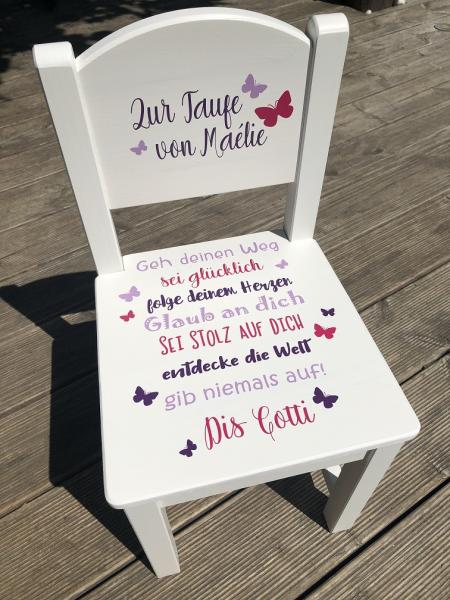 Zur Taufe
von Maélie
Geh deinen Weg
sei glücklich
folge deinem Herzen
Glaub an dich
SEI STOLZ AUF DICH
entdecke die Welt
gib niemals auf!
Dis Gotti